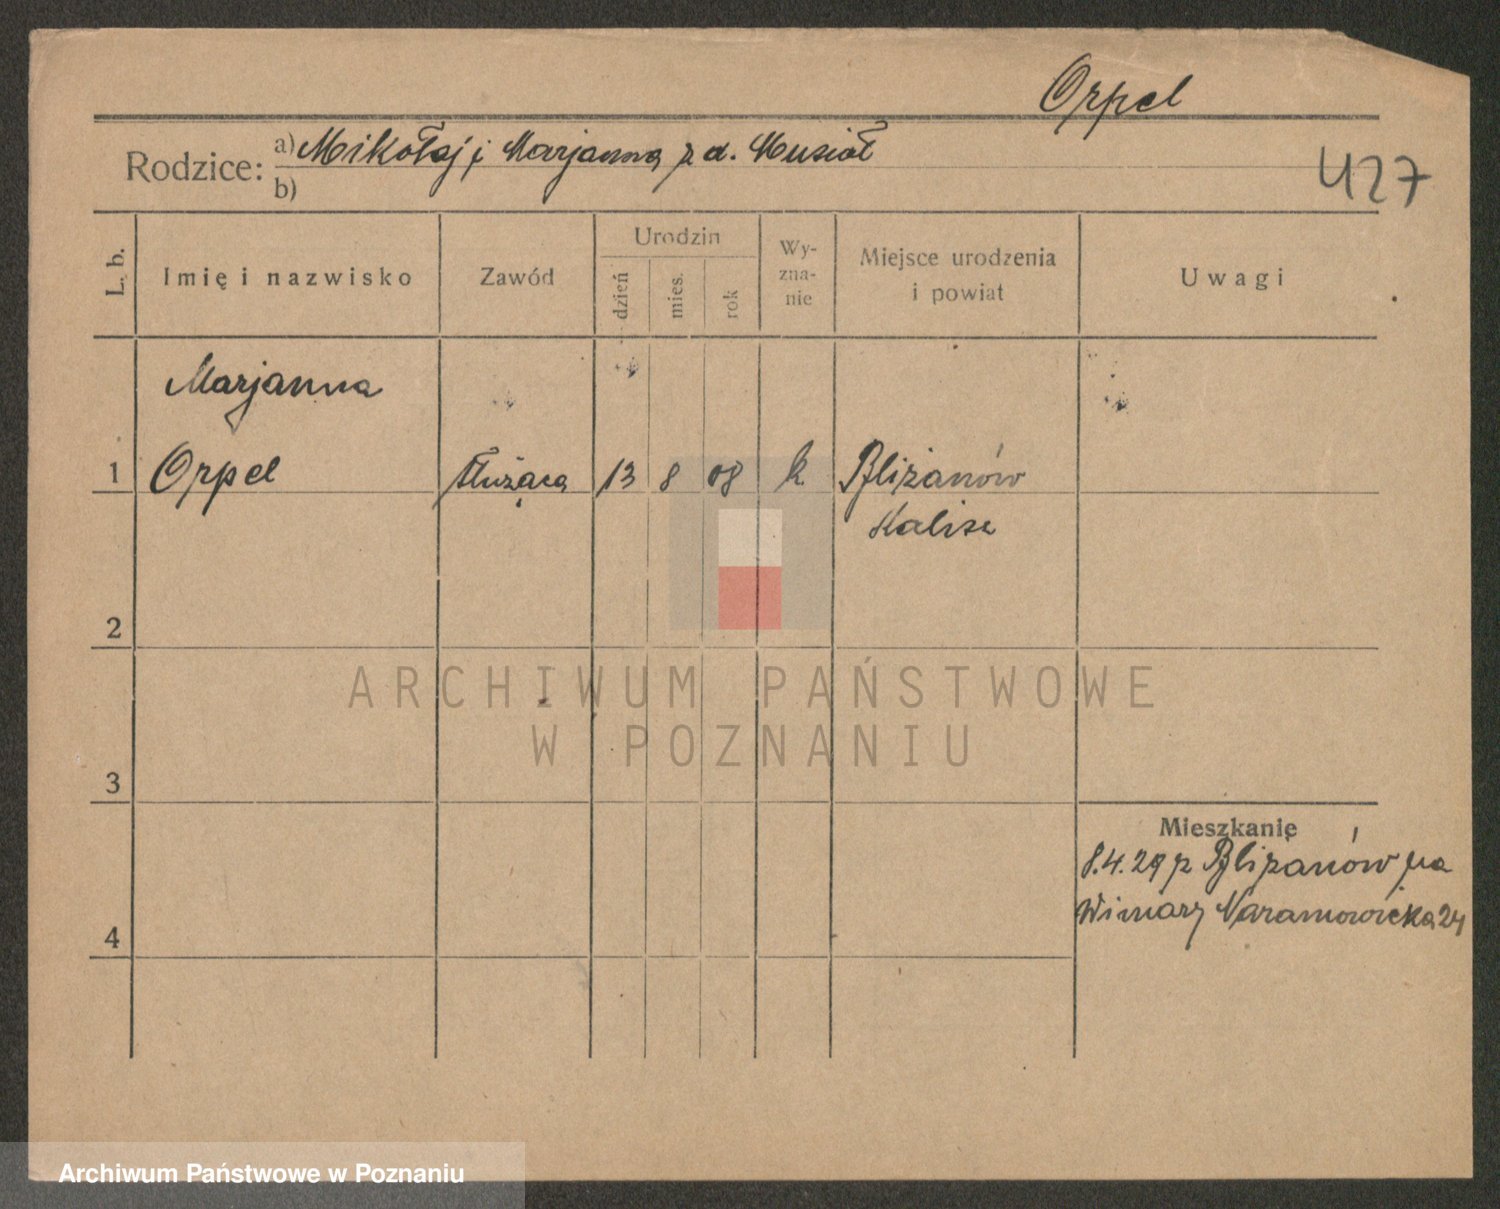 Orpel
Rodzice: a) Mikołaj i Marjanna z d. Musiał
b)
427
L. b.
Imię i nazwisko
Zawód
Urodzin
dzień
mies.
rok
Wy-
zna-
nie
Miejsce urodzenia
i powiat
Uwagi
Marjanna
1 Orpel służąca 13 8 08 k. Bliżanów
Kalisz
2
3
4
Mieszkanie
8.4.29 z Bliżanów na
Winiary Naramowicka 24
ARCHIWUM PAŃSTWOWE
W POZNANIU
Archiwum Państwowe w Poznaniu